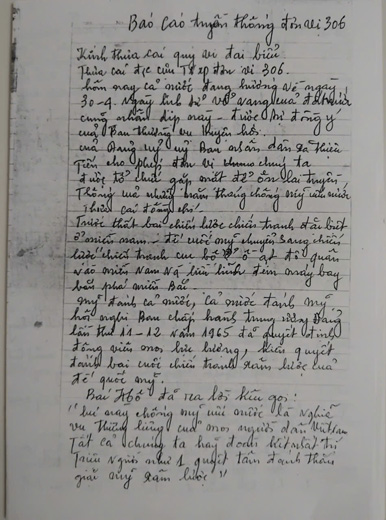 Báo cáo truyền thống đơn vị 306
Kính thưa các quý vị đại biểu
Thưa các đ/c cựu đơn vị 306.
hôm nay cả nước đang hướng về ngày
30-4. Ngày lịch sử vẻ vang của
cùng nhân dịp này - được sự đồng ý
của Ban thường vụ huyện hội.
của Đảng uỷ uỷ Ban nhân dân xã Thiệu
Tiến cho phép đơn vị chúng ta
được tổ chức gặp mặt để ôn lại truyền
thống những năm tháng chống mỹ cứu nước
Thưa các đồng chí.
Trước thất bại chiến lược chiến tranh đặc biệt
ở miền nam - đế cuốc mỹ chuyển sang chiến
lược chiến tranh cục bộ ồ ạt đổ quân
vào miền Nam liều lĩnh đem máy bay
bắn phá miền Bắc.
mỹ đánh cả nước, cả nước đánh mỹ
hội nghị Ban chấp hành trung ương Đảng
lần thứ 11-12 năm 1965 đã quyết định
động viên mọi lực lượng, kiên quyết
đánh bại cuộc chiến tranh xâm lược của
đế quốc mỹ.
Bác Hồ đã ra lời kêu gọi:
"lúc này chống mỹ cứu nước là nghĩa
vụ thiêng liêng của mọi người dân Việt nam
Tất cả chúng ta hãy đoàn kết nhất trí
triệu người như 1 quyết tâm đánh thắng
giặc mỹ xâm lược"